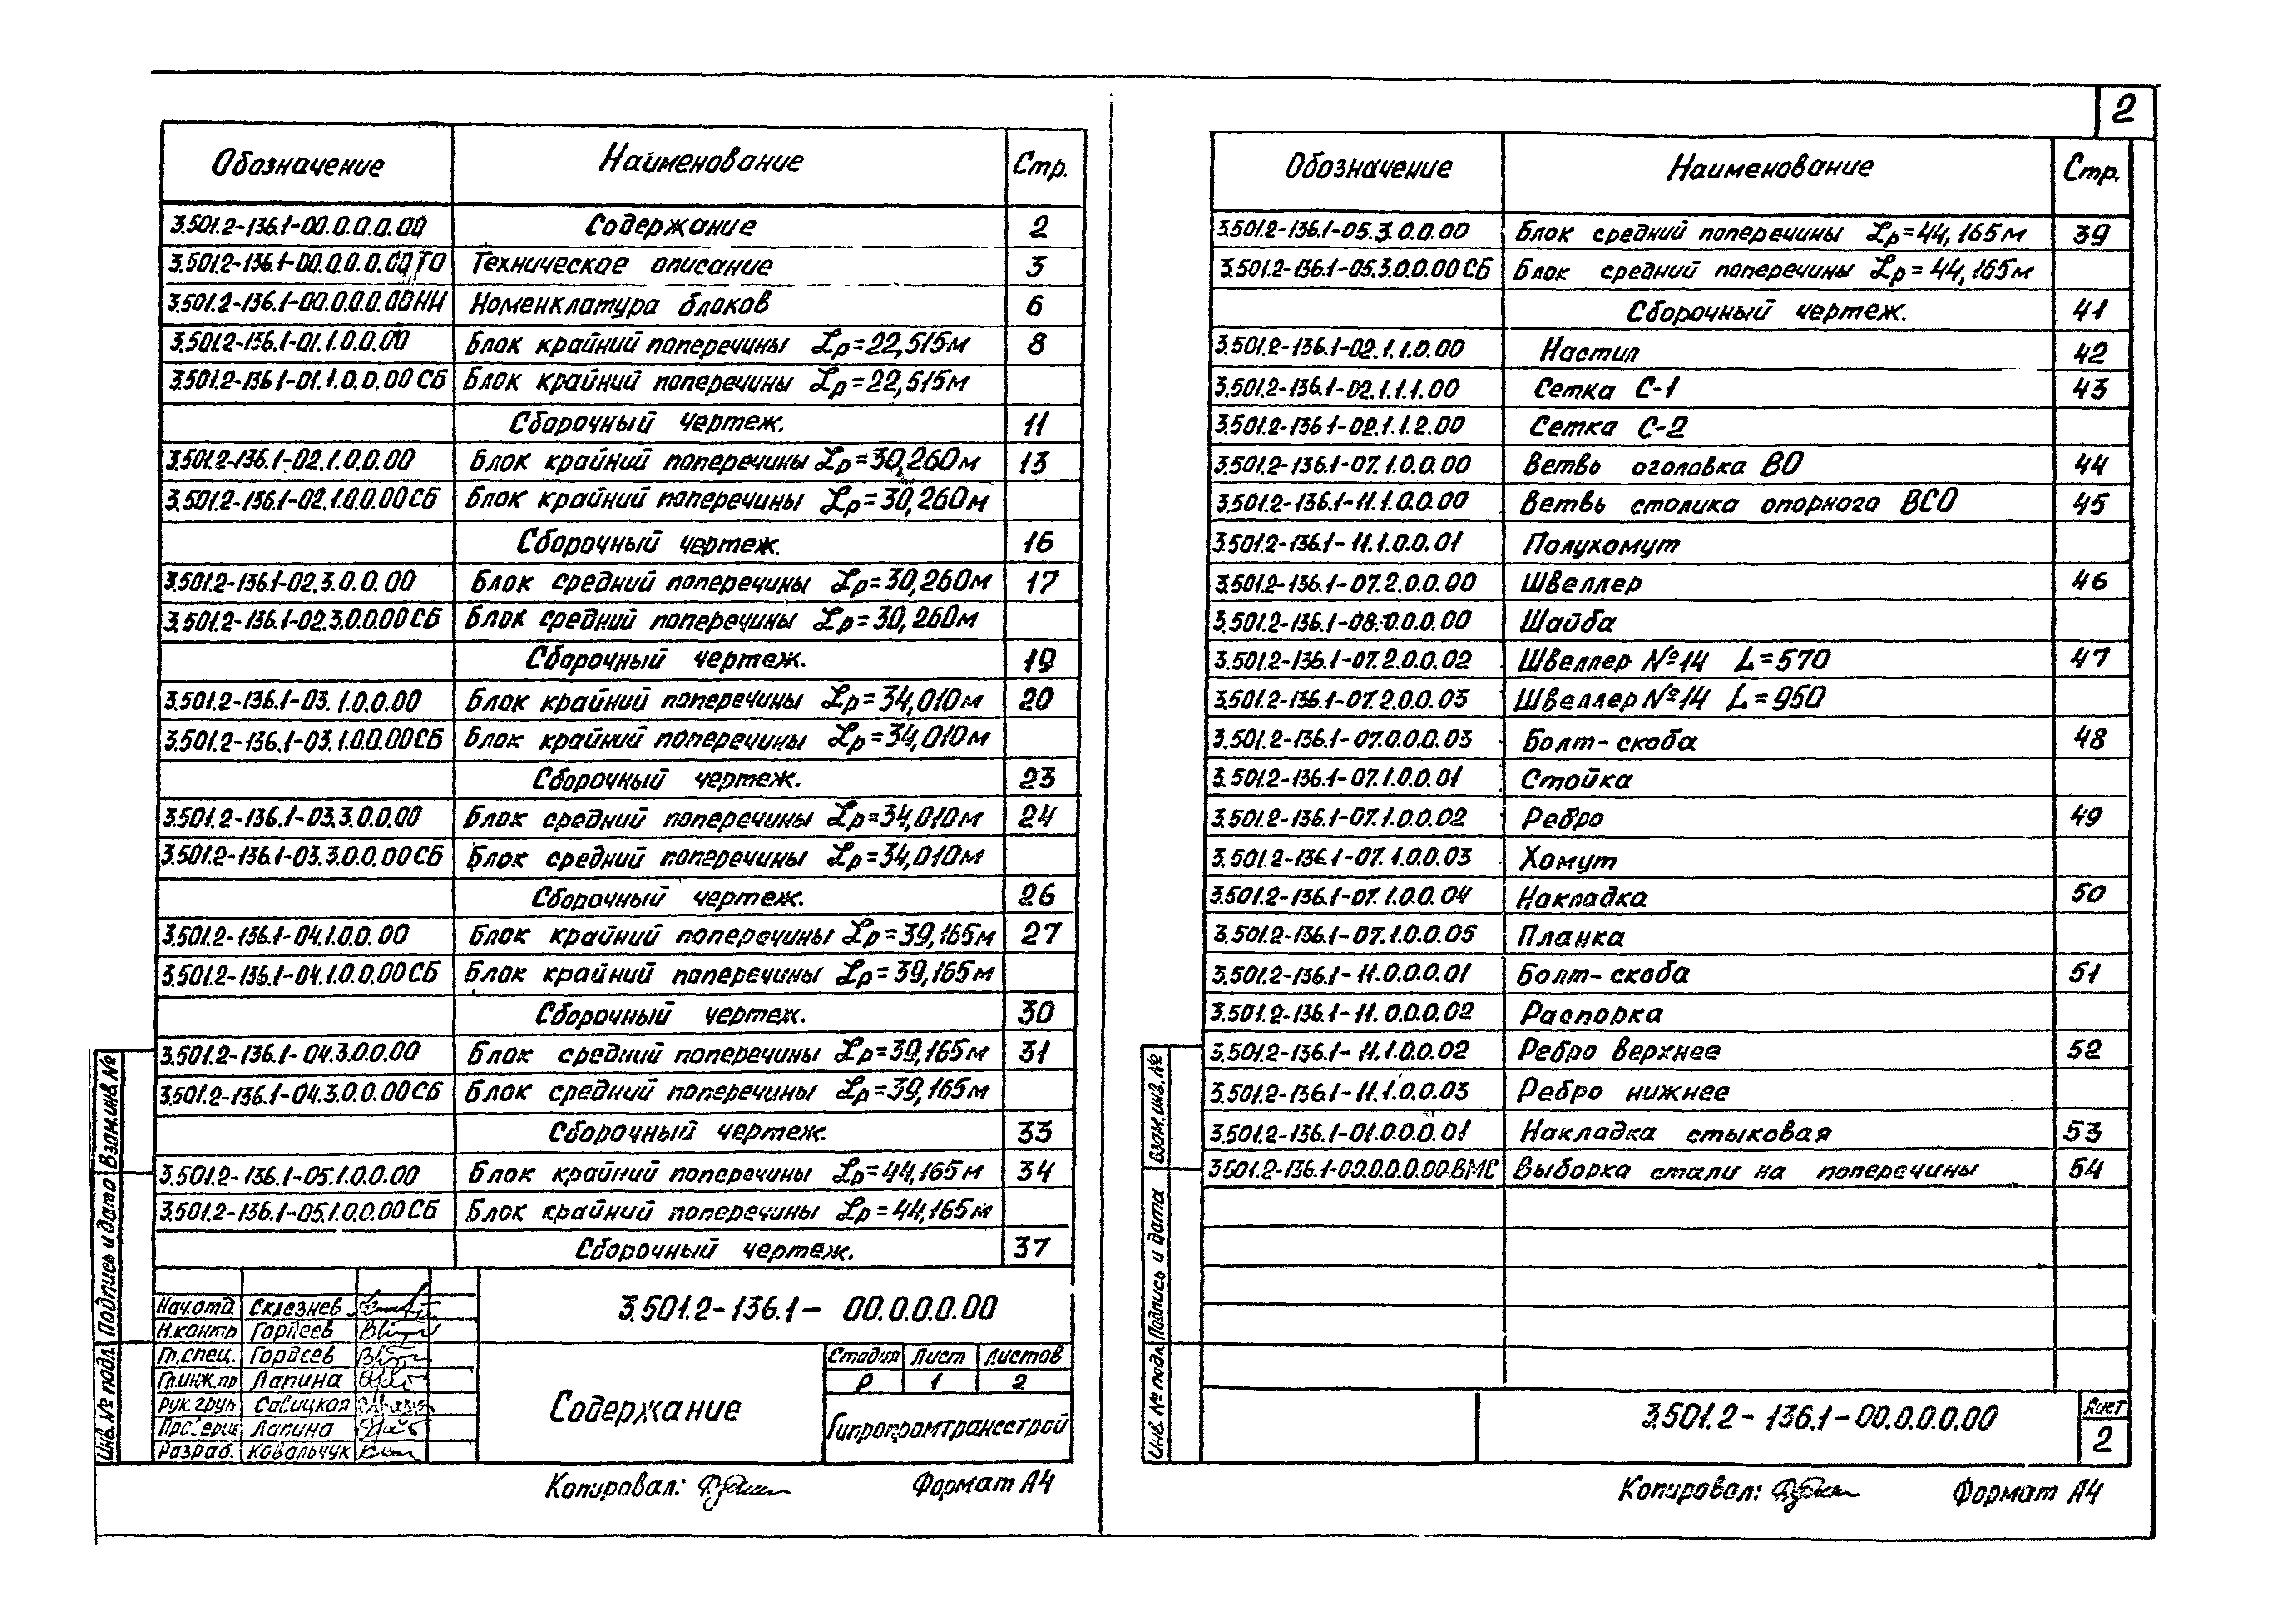 2
Обозначение Наименование Стр.
3.501.2-136.1-00.0.0.0.00 Содержание 2
3.501.2-136.1-00.0.0.0.00ТО Техническое описание 3
3.501.2-136.1-00.0.0.0.00НИ Номенклатура блоков 6
3.501.2-136.1-01.1.0.0.00 Блок крайний поперечины Lр=22,515м 8
3.501.2-136.1-01.1.0.0.00СБ Блок крайний поперечины Lр=22,515м
Сборочный чертеж. 11
3.501.2-136.1-02.1.0.0.00 Блок крайний поперечины Lр=30,260м 13
3.501.2-136.1-02.1.0.0.00СБ Блок крайний поперечины Lр=30,260м
Сборочный чертеж. 16
3.501.2-136.1-02.3.0.0.00 Блок средний поперечины Lр=30,260м 17
3.501.2-136.1-02.3.0.0.00СБ Блок средний поперечины Lр=30,260м
Сборочный чертеж. 19
3.501.2-136.1-03.1.0.0.00 Блок крайний поперечины Lр=34,010м 20
3.501.2-136.1-03.1.0.0.00СБ Блок крайний поперечины Lр=34,010м
Сборочный чертеж. 23
3.501.2-136.1-03.3.0.0.00 Блок средний поперечины Lр=34,010м 24
3.501.2-136.1-03.3.0.0.00СБ Блок средний поперечины Lр=34,010м
Сборочный чертеж. 26
3.501.2-136.1-04.1.0.0.00 Блок крайний поперечины Lр=39,165м 27
3.501.2-136.1-04.1.0.0.00СБ Блок крайний поперечины Lр=39,165м
Сборочный чертеж. 30
3.501.2-136.1-04.3.0.0.00 Блок средний поперечины Lр=39,165м 31
3.501.2-136.1-04.3.0.0.00СБ Блок средний поперечины Lр=39,165м
Сборочный чертеж. 33
3.501.2-136.1-05.1.0.0.00 Блок крайний поперечины Lр=44,165м 34
3.501.2-136.1-05.1.0.0.00СБ Блок крайний поперечины Lр=44,165м
Сборочный чертеж. 37
Взам.инв.№
Подпись и дата
Инв.№ подл.
Нач.отд. Склезнев
Н.контр Гордеев
Гл.спец. Гордеев
Гл.инж.пр Лапина
Рук.груп Савицкая
Проверил Лапина
Разраб. Ковальчук
3.501.2-136.1-00.0.0.0.00
Содержание
Стадия Лист Листов
Р 1 2
Гипропромтрансстрой
Копировал: Формат А4
Обозначение Наименование Стр.
3.501.2-136.1-05.3.0.0.00 Блок средний поперечины Lр=44,165м 39
3.501.2-136.1-05.3.0.0.00СБ Блок средний поперечины Lр=44,165м
Сборочный чертеж. 41
3.501.2-136.1-02.1.1.0.00 Настил 42
3.501.2-136.1-02.1.1.1.00 Сетка С-1 43
3.501.2-136.1-02.1.1.2.00 Сетка С-2
3.501.2-136.1-07.1.0.0.00 Ветвь оголовка ВО 44
3.501.2-136.1-11.1.0.0.00 Ветвь столика опорного ВСО 45
3.501.2-136.1-11.1.0.0.01 Полухомут
3.501.2-136.1-07.2.0.0.00 Швеллер 46
3.501.2-136.1-08.0.0.0.00 Шайба
3.501.2-136.1-07.2.0.0.02 Швеллер №14 L=570 47
3.501.2-136.1-07.2.0.0.03 Швеллер №14 L=950
3.501.2-136.1-07.0.0.0.03 Болт-скоба 48
3.501.2-136.1-07.1.0.0.01 Стойка
3.501.2-136.1-07.1.0.0.02 Ребро 49
3.501.2-136.1-07.1.0.0.03 Хомут
3.501.2-136.1-07.1.0.0.04 Накладка 50
3.501.2-136.1-07.1.0.0.05 Планка
3.501.2-136.1-11.0.0.0.01 Болт-скоба 51
3.501.2-136.1-11.0.0.0.02 Распорка
3.501.2-136.1-11.1.0.0.02 Ребро верхнее 52
3.501.2-136.1-11.1.0.0.03 Ребро нижнее
3.501.2-136.1-01.0.0.0.01 Накладка стыковая 53
3.501.2-136.1-00.0.0.0.00.ВМС Выборка стали на поперечины 54
Взам.инв.№
Подпись и дата
Инв.№ подл.
3.501.2-136.1-00.0.0.0.00
Лист
2
Копировал: Формат А4